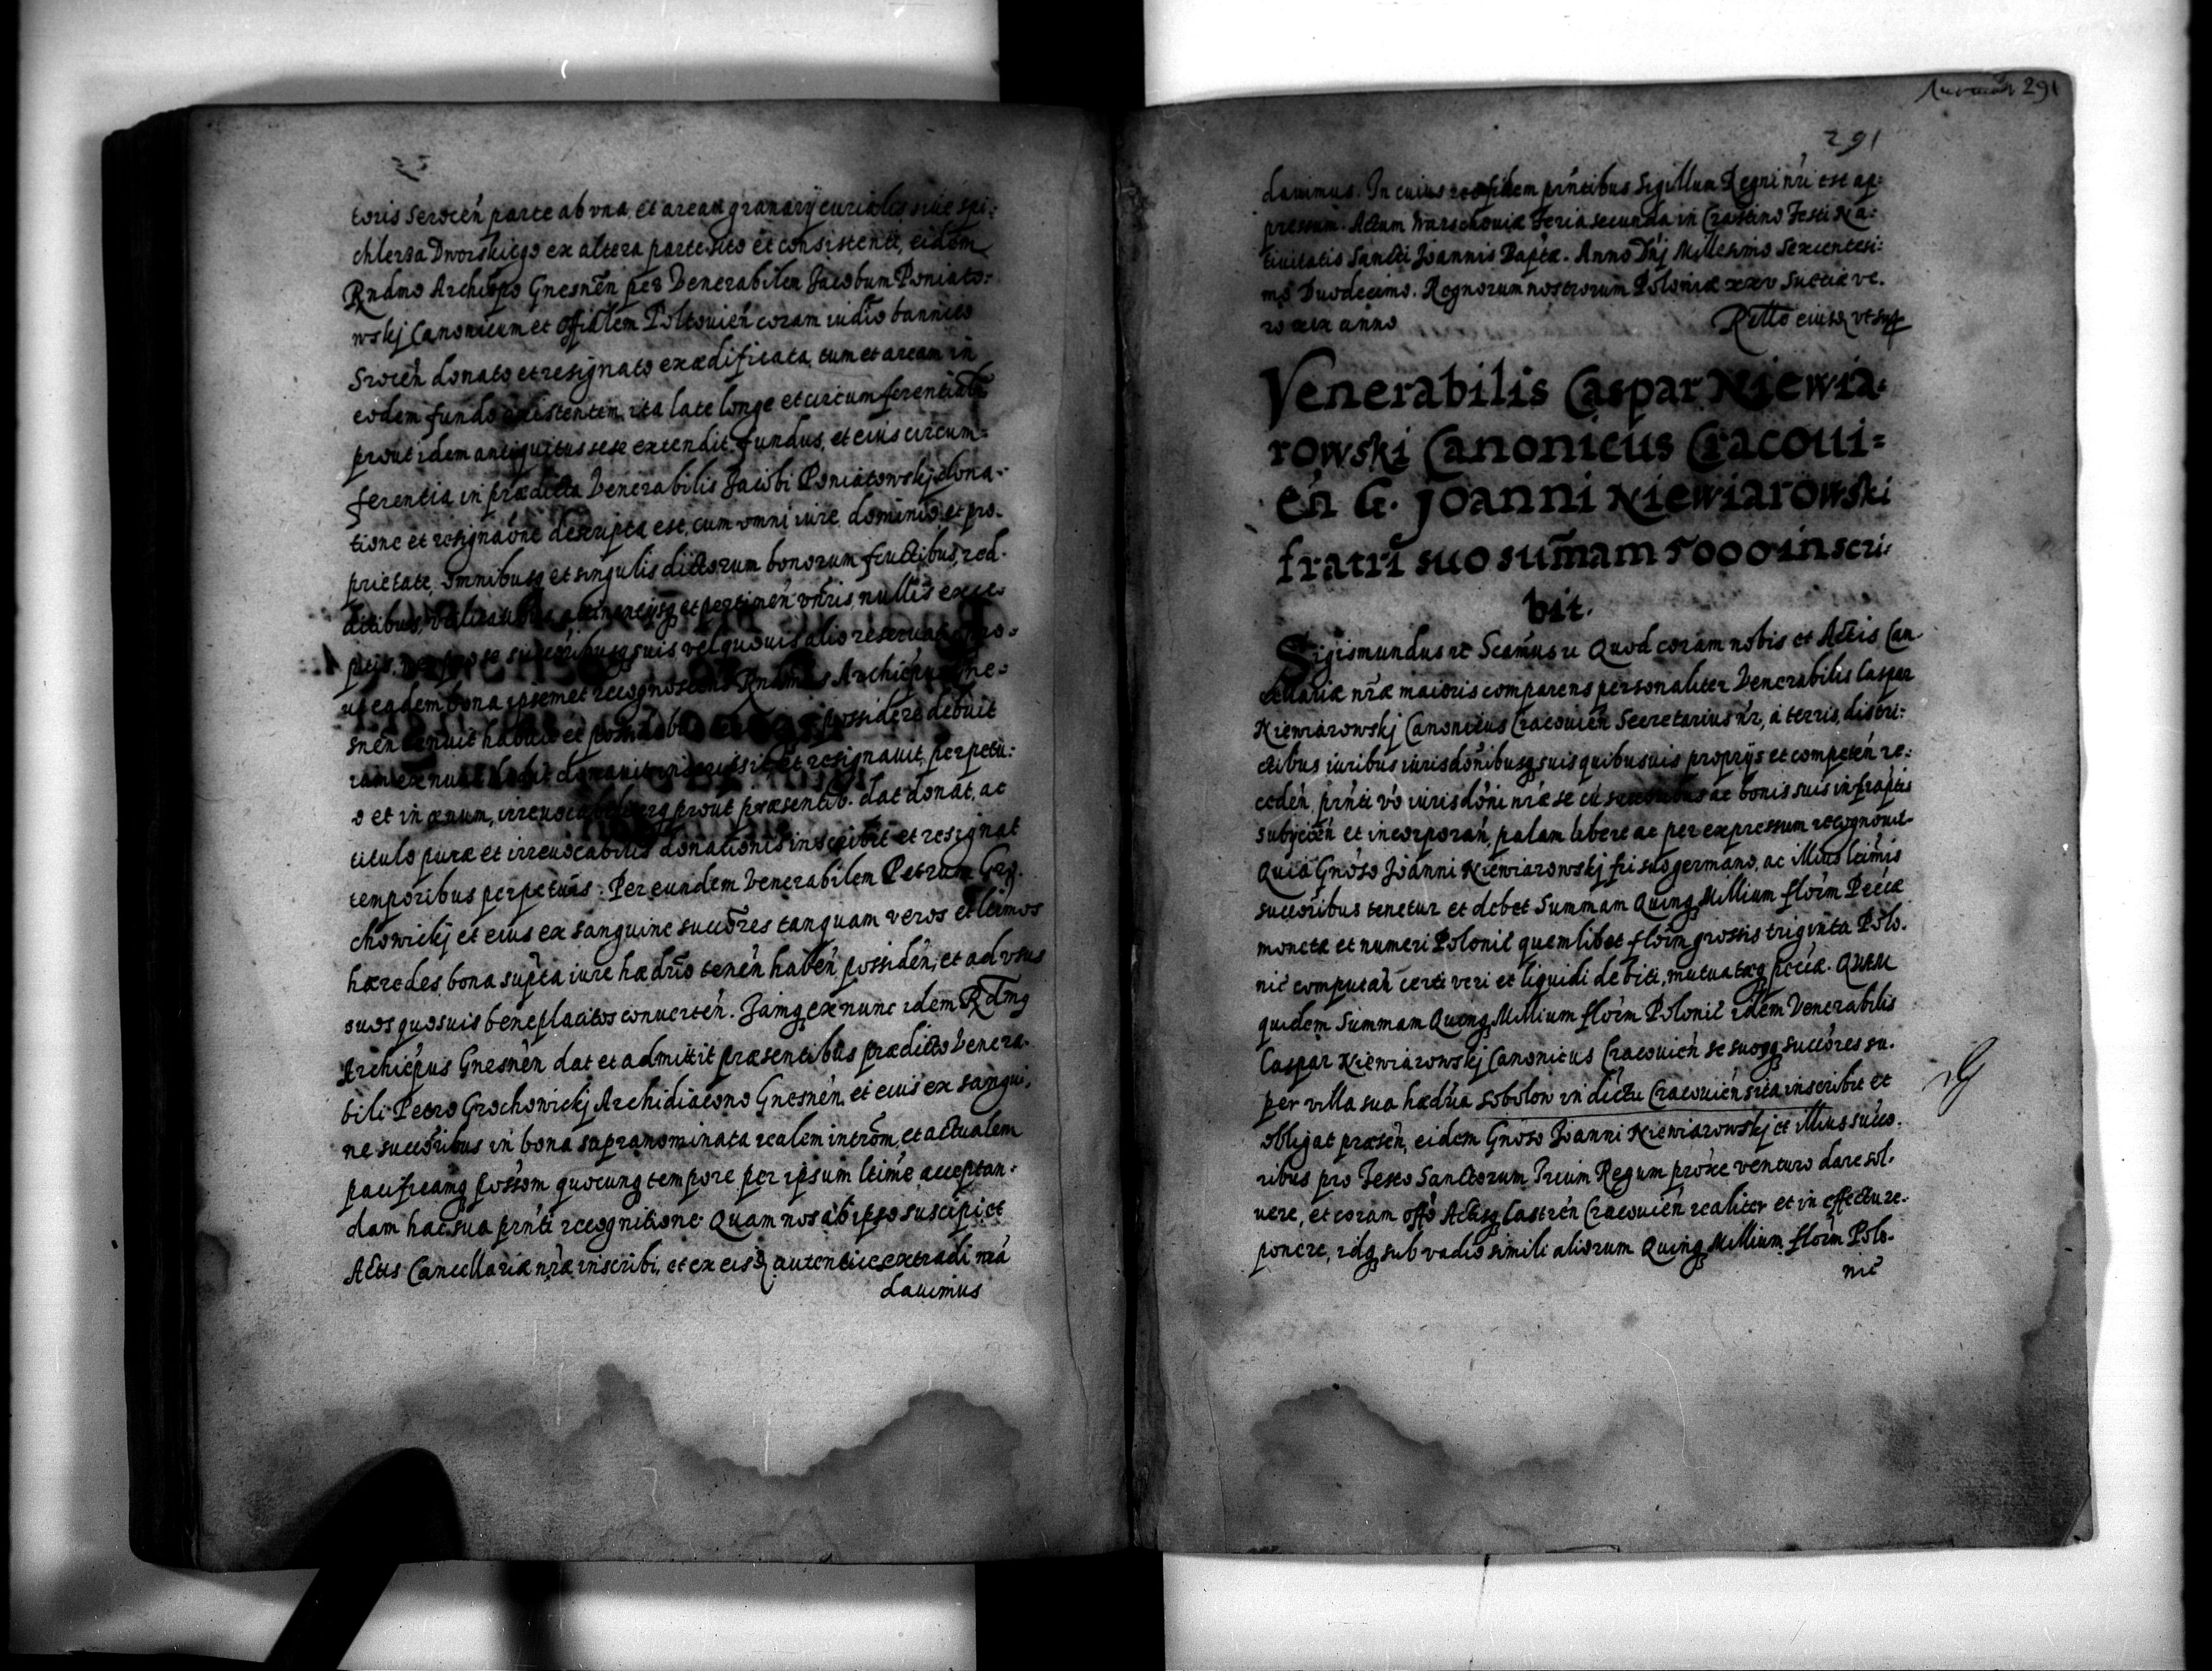 toris Serocen̄ parte ab vna, et aream granarij curialis siue spi:
chlerza Dworskiego ex altera parte sito et consistenti, eidem
Rndmo Archiepo Gnesnen̄ per Venerabilem Jacobum Poniato:
wskj Canonicum et Offialem Poltouien̄ coram iudio bannito
Srocen̄ donato et resignato exædificata, tum et aream in
eodem fundo existentem, ita late longe et circumferentialr
prout idem antiquitus sese extendit fundus, et eius circum=
ferentia in prædicta Venerabilis Jacobi Poniatowskj dona-
tione et resignaone descripta est, cum omni iure dominio et pro-
prietate, omnibusq et singulis dictorum bonorum fructibus, red-
ditibus, attinentijsq et pertinen̄ vnīris, nullis exce-
ptis, suis vel quouis alio
vt eadem bona ipsemet recognoscens Rndmus Archiepus Gne-
snen̄ tenuit habuit et possidere debuit
donauit et resignauit, perpetu:
o et in æuum, prout præsentib. dat donat, ac
titulo puræ et irreuocabilis donationis inscribit et resignat
temporibus perpetuis. Per eundem Venerabilem Petrum Gro-
chowickj et eius ex sanguine succōres tanquam veros et ltimos
hæredes, bona sup̄ta iure hæd̄rio tenen̄ haben̄ possiden̄, et ad vsus
suos quosuis beneplacitos conuerten̄. Jamq ex nunc idem Rdmq
Archiepus Gnesnen̄ dat et admittit præsentibus prædicto Venera-
bili Petro Grochowickj Archidiacono Gnesnen̄, et eius ex sangui-
ne succōribus in bona supranominata realem intrōm, et actualem
pacificamq possōm quocunq tempore per ipsum ltime acceptan-
dam hac sua prnti recognitione. Quam nos ab ipso suscipi et
Actis Cancellariæ nræ inscribi, et ex eisq autentice extradi man̄
dauimus
291
291
dauimus. In cuius rei fidem prntibus Sigillum Regni nri est ap:
pressum. Actum Warschouiæ feria secunda in Crastino Festi Na:
tiuitatis Sancti Joannis Baptæ. Anno Dnj Millesimo Sexcentesi:
mo Duodecimo. Regnorum nostrorum Poloniæ xxv Sueciæ ve-
ro xix anno
Retto eiusq vt sup
Venerabilis Caspar Niewia-
rowski Canonicus Cracoui=
en̄ G. Joanni Niewiarowski
fratri suo sum̄am 5000 inscri-
bit.
Sigismundus ec Scām̄us ec Quod coram nobis et Actis Can-
cellariæ nræ maioris comparens personaliter Venerabilis Caspar
Niewiarowskj Canonicus Cracouien̄ Secretarius nr, a terris, distri:
ctibus iuribus iurisdōnibusq suis quibusuis proprijs et competen̄ re:
ceden̄, prnti vo iurisdōni nræ se cu succōribus ac bonis suis infraptis
subijcien̄ et incorporan̄, palam libere ac per expressum recognouit
Quia Gnoso Joanni Niewiarowskj fri suo germano, ac illius ltimis
succōribus tenetur et debet Summam Quinq Millium florm Pecūæ
monetæ et numeri Polonil quemlibet florm grossis triginta Polo-
nic computan̄ certi veri et liquidi debiti, mutuatæq pecūæ. Quam
quidem Summam Quinq Millium florm Polonil idem Venerabilis
Caspar Niewiarowskj Canonicus Cracouien̄ se suosq succōres su-
per villa sua hædria Sobolow in dictu Cracouien̄ sita inscribit et
obligat præsen̄, eidem Gnoso Joanni Niewiarowskj et illius succo-
ribus pro Festo Sanctorum Trium Regum proxe venturo dare sol-
uere, et coram offo Actisq Castren̄ Cracouien̄ realiter et in effectu re-
ponere, idq sub vadio simili aliorum Quinq Millium florm Polo-
nic